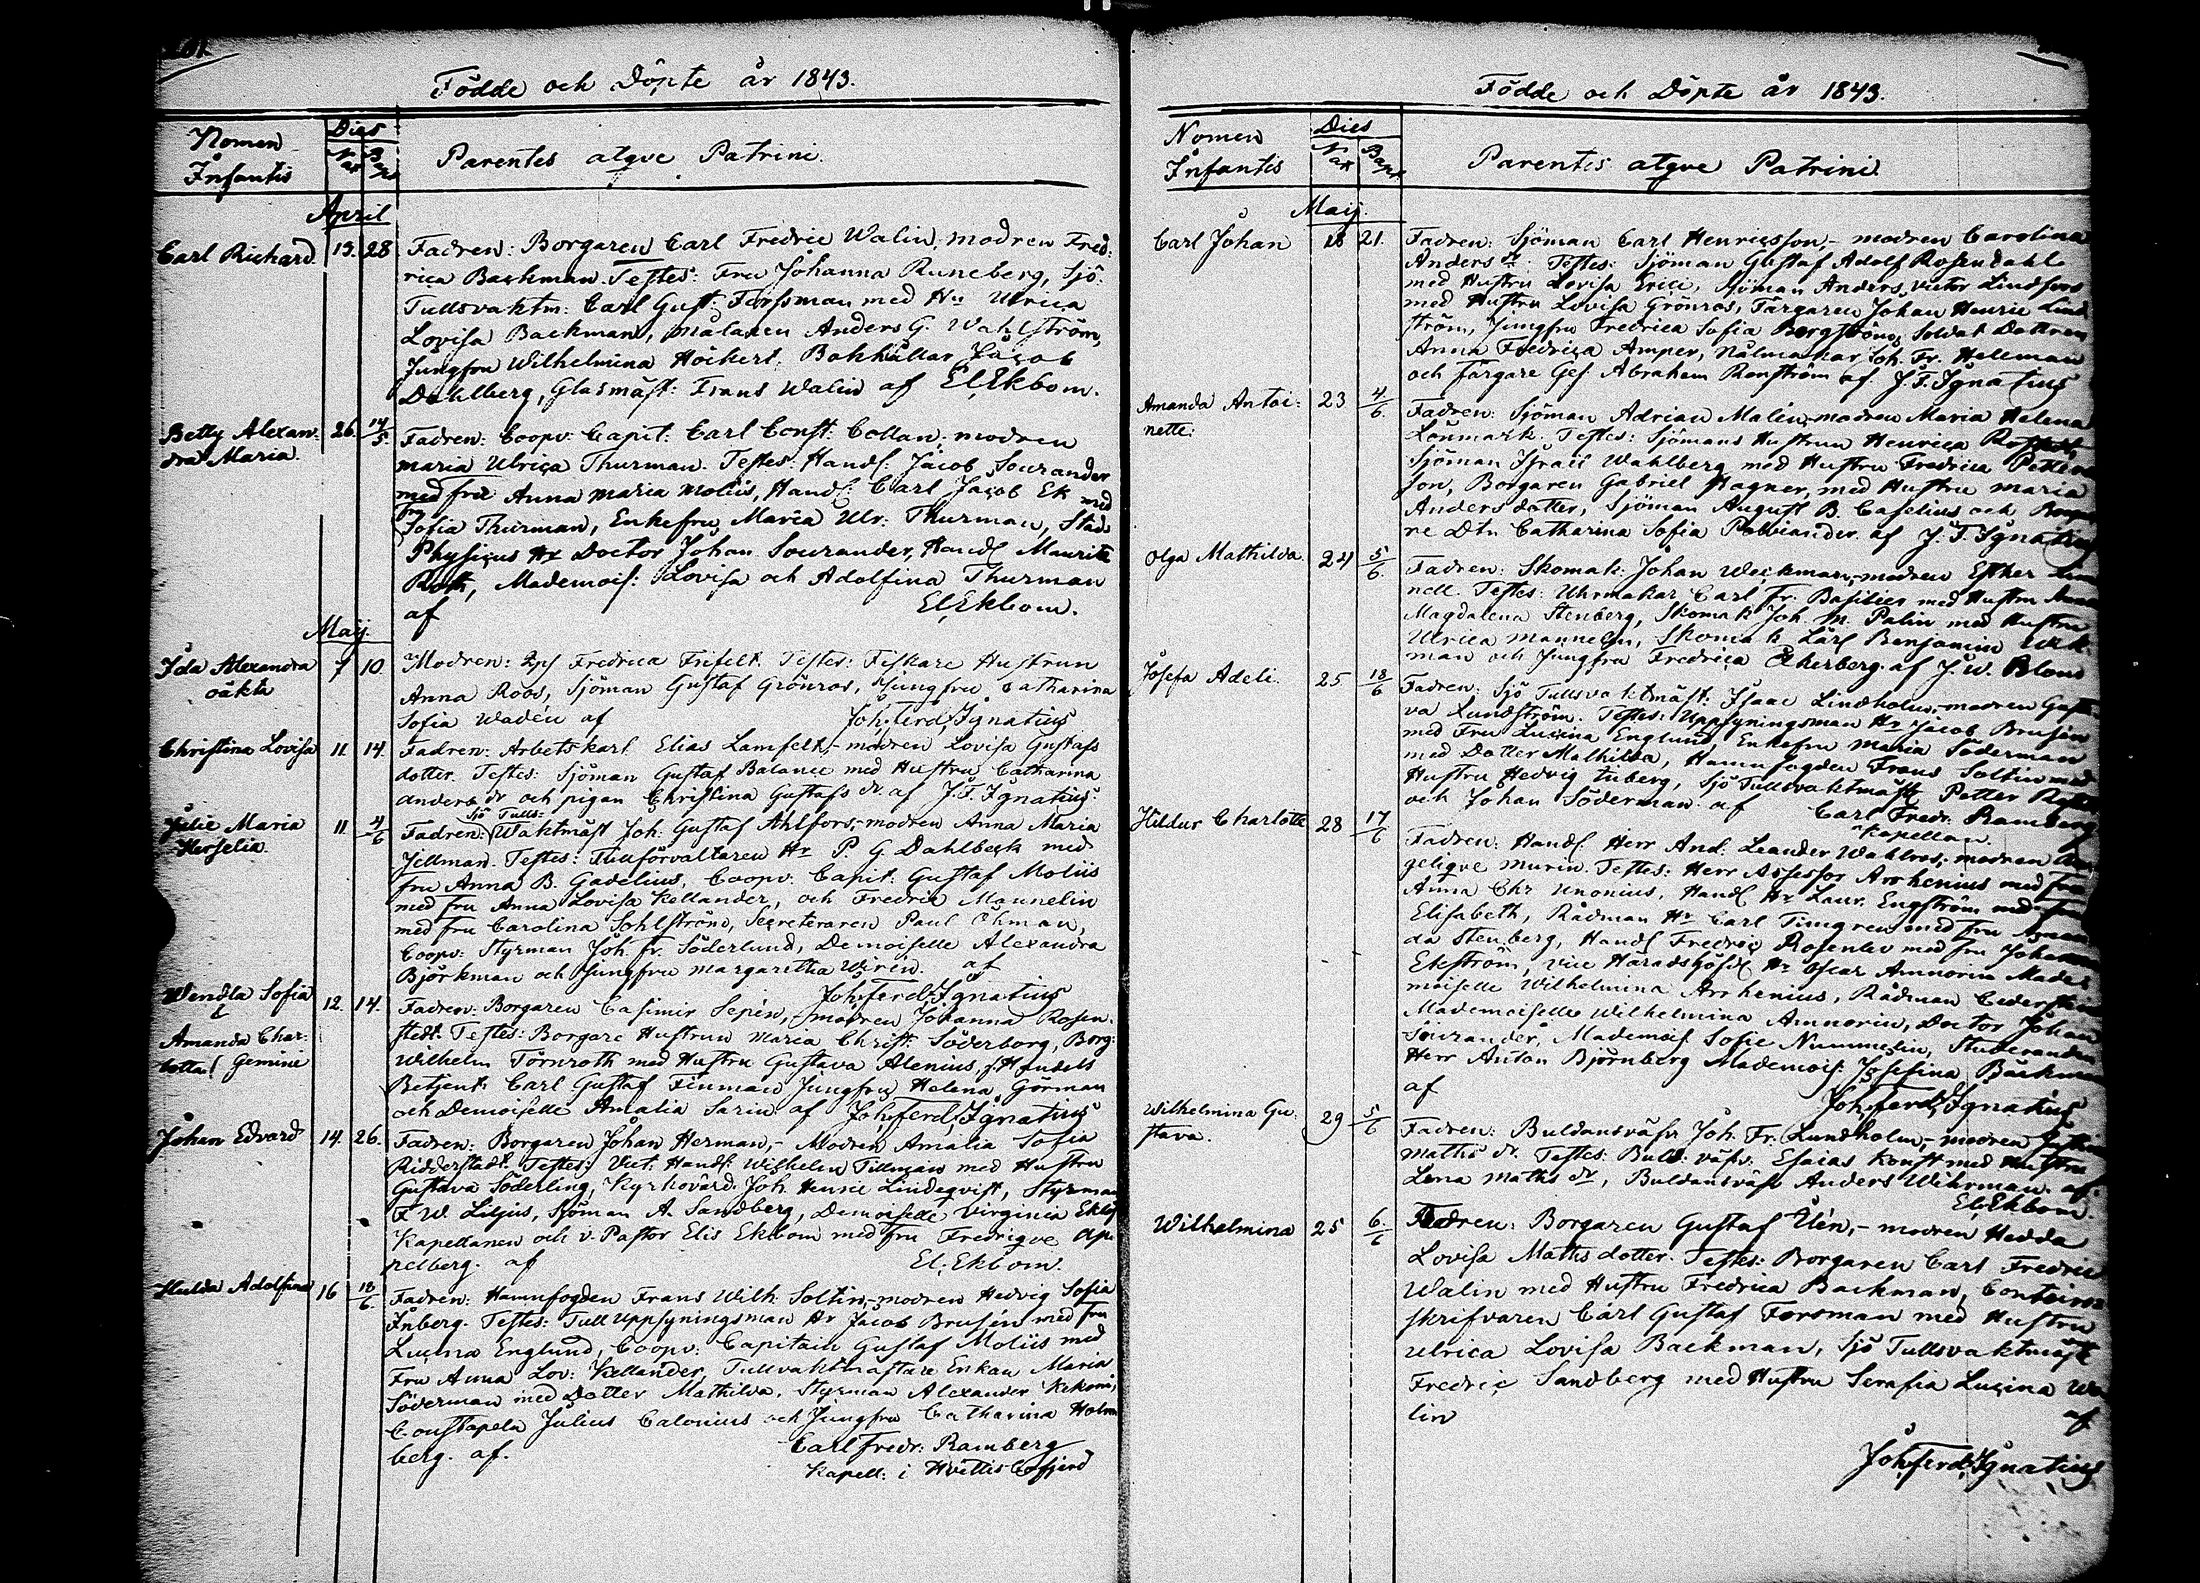 Födde och Döpte år 1843.
Nomen Infantis
Dies
Nat
Bapt
Parentes atqve Patrini.
April
Carl Richard. 15. 28 Fadren: Borgaren Carl Fredric Walin, modren Fred:
rica Backman. Testes: Fru Johanna Runeberg, Sjö
Tullsvaktm: Carl Gust: Forssman med Hu Ulrica
Lovisa Backman, målaren Anders G. Wahlström,
Jungfru Wilhelmina Höckert, Bokhållar Jacob
Dahlberg, Glasmäst: Frans Walin af El. Ekbom.
Betty Alexan: 26. 14/5. Fadren: Coopv: Capit: Carl Const: Collan, modren
dra Maria. Maria Ulrica Thurman. Testes: Handl: Jacob Sourander
med fru Anna Maria Moliis, Handl: Carl Jacob Ek med
fru Sofia Thurman, Enkefru Maria Ulr. Thurman, Stads
Physicus Hr Doctor Johan Sourander, Handl Mauritz
Roth, Mademois: Lovisa och Adolfina Thurman
af El. Ekbom.
Maij.
Ida Alexandra 7 10. Modren: Fredrica Frifelt. Testes: Fiskare Hustrun
oäkta Anna Roos, Sjöman Gustaf Grönros, Jungfru Catharina
Sofia Wadén af Joh. Ferd. Ignatius
Christina Lovisa 11. 14. Fadren: Arbetskarl Elias Lamfelt, - modren Lovisa Gustafs
dotter. Testes: Sjöman Gustaf Balance med Hustru Catharina
Anders dr och pigan Christina Gustafs dr. af J. F. Ignatius.
Sjö Tulls:
Julie Maria 11. 4/6 Fadren: Waktmäst Joh: Gustaf Ahlfors, - modren Anna Maria
Herselia. Jillman. Testes: Tullförvaltaren Hr P. G. Dahlbeck med
fru Anna B. Gadelius, Coopv: Capit: Gustaf Moliis
med fru Anna Lovisa Kellander, och Fredric Mannelin
med fru Carolina Sohlström, Secreteraren Paul Öhman,
Coopv: Styrman Joh. Fr. Söderlund, Demoiselle Alexandra
Björkman och Jungfru Margaretha Wirén. af
Joh. Ferd. Ignatius
Wendla Sofia 12. 14. Fadren: Borgaren Casimir Sepén, - modren Johanna Rosen-
& stedt. Testes: Borgare Hustrun Maria Christ: Söderborg, Borg:
Amanda Char: Wilhelm Törnroth med Hustru Gustava Alenius, Handels
lotta Gemini Betjent: Carl Gustaf Finman Jungfru Helena Görman
och Demoiselle Amalia Sarin af Joh. Ferd. Ignatius
Johan Edvard 14. 26. Fadren: Borgaren Johan Herman, - Modren Amalia Sofia
Ridderstadt. Testes: Vict: Handl: Wilhelm Tillman med Hustru
Gustava Söderling, Kyrkovärd. Joh. Henric Lindeqvist, Styrman
F. W. Liljus, Sjöman A. Sandberg, Demoiselle Virginia
Kapellanen och v. Pastor Elis Ekbom med fru Fredriqve Ap-
pelberg. af El. Ekbom.
Hulda Adolfina 16 18/6. Fadren: Hamnfogden Frans Wilh. Soltin, - modren Hedvig Sofia
Inberg. Testes: Tull Uppsyningsman Hr Jacob Brusin med fru
Lucina Englund, Coopv: Capitain Gustaf Moliis med
Fru Anna Lov: Kellander, Tullvaktmästare Enkan Maria
Söderman med Dotter Mathilda, Styrman Alexander
Constapeln Julius Calonius och Jungfru Catharina Holm
berg. af. Carl Fredr: Ramberg
Kapell: i Hvittis Bofjerd
Födde och Döpte år 1843.
Nomen Infantis
Dies
Nat
Bapt
Parentes atqve Patrini
Maij.
Carl Johan 18 21. Fadren: Sjöman Carl Henricsson, - modren Carolina
Anders dr. Testes: Sjöman Gustaf Adolf Rosendahl
med Hustru Lovisa Erici, Sjöman Anders Victor Lindfors
med Hustru Lovisa Grönros, Färgaren Johan Henric Lind
ström, Jungfru Fredrica Sofia Bergström, Soldat Dottren
Anna Fredrica Amper, Nålmakar Joh. Fr. Hellman
och färgare Ges Abraham Renström af. J. F. Ignatius
Amanda Antoi: 23 4/6. Fadren: Sjöman Adrian Malin, modren Maria Helena
nette: Lönmark. Testes: Sjömans Hustrun Henrica
Sjöman Israel Wahlberg med Hustru Fredrica Petters
son, Borgaren Gabriel Hagner, med Hustru Maria
Anders dotter, Sjöman August B. Caselius och
re Dtr Catharina Sofia af J. F. Ignatius
Olga Mathilda. 24 5/6. Fadren: Skomak: Johan Weckman, - modren Esther
nell. Testes: Uhrmakar Carl Fr. Basilier med Hustru Anna
Magdalena Stenberg, Skomak Joh. M. Palin med Hustru
Ulrica Mannelin, Skomak Lärl Benjamin
man och Jungfru Fredrica Åkerberg. af J. W. Blom
Josefa Adeli. 25 18/6 Fadren: Sjö Tullsvaktmäst: Isaac Lindholm, - modren Gusta
va Lundström. Testes: Uppsyningsman Hr Jacob Brusin
med Fru Lucina Englund, Enkefru Maria Söderman
med Dotter Mathilda, Hamnfogden Frans Soltin med
Hustru Hedvig Inberg, Sjö Tullsvaktmäst Petter
och Johan Söderman. af Carl Fredr. Ramberg
Kapellan.
Hildur Charlotte 28 17/6 Fadren: Handl Herr And: Leander Wahlroos; modren An
geliqve Murin. Testes: Herr Assessor Arrhenius med fru
Anna Chr Unonius, Handl Hr Laur. Engström med fru
Elisabeth, Rådman Hr Carl Timgren med fru Aman
da Stenberg, Handl Fredric Rosenlev med fru Johanna
Ekström, Vice Häradshöfd Hr Oscar Amnorin Made
moiselle Wilhelmina Arrhenius, Rådman
Mademoiselle Wilhelmina Amnorin, Doctor Johan
Sourander, Mademois Sofie Nummelin, Studeranden
Herr Anton Björnberg Mademois: Josefina Bäckman
af Joh. Ferd. Ignatius
Wilhelmina Gu: 29 5/6 Fadren: Buldansväfv Joh. Fr. Lundholm, - modren
stava. Matts dr. Testes. Buld. väfv. Esaias Konst med Hustru
Lena Matts dr, Buldansväfv Anders Wihrman. af.
El. Ekbom.
Wilhelmina 25 6./6 Fadren: Borgaren Gustaf Ulén, - modren Hedda
Lovisa Matts dotter. Testes: Borgaren Carl Fredric
Walin med Hustru Fredrica Backman, Contoirs
skrifvaren Carl Gustaf Forsman med Hustru
Ulrica Lovisa Backman, Sjö Tullsvaktmäst
Fredric Sandberg med Hustru Serafia Lucina Wa
lin af
Joh. Ferd. Ignatius